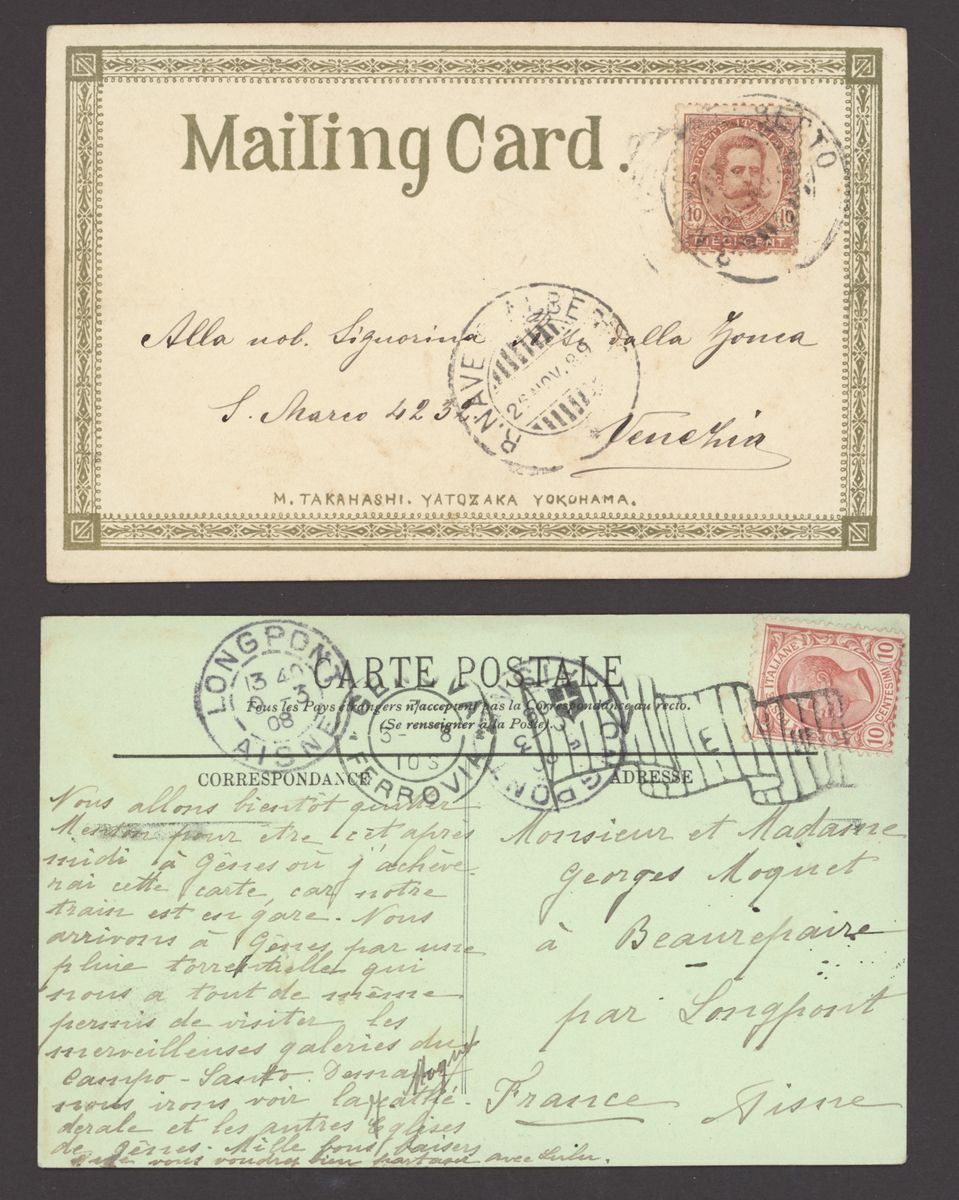 Mailing Card.
POSTE ITALIANE
10 10
DIECI CENT
Alla nob. Signorina dalla Zonca
R. NAVE
26 NOV. 89
S. Marco 423
Venezia
M. TAKAHASHI. YATOZAKA YOKOHAMA.
CARTE POSTALE
Tous les Pays étrangers n'acceptent pas la Correspondance au recto.
(Se renseigner à la Poste).
LONGPONT
13 3
08
AISNE
FERROVIA
LONGPONT
POSTE ITALIANE
10 10
CENTESIMI
CORRESPONDANCE
ADRESSE
Nous allons bientôt quitter
Menton pour etre cet apres
midi à Gênes où j'achève-
rai cette carte, car notre
train est en gare. Nous
arrivons à Gênes par une
pluie torrentielle qui
nous a tout de même
permis de visiter les
merveilleuses galeries du
Campo-Santo. Demain
nous irons voir la cathé-
derale et les autres Eglises
de Gênes. Mille bons baisers
que vous voudrez bien partager avec Lulu.
Moquet
Monsieur et Madame
Georges Moquet
à Beaurepaire
par Longpont
France Aisne